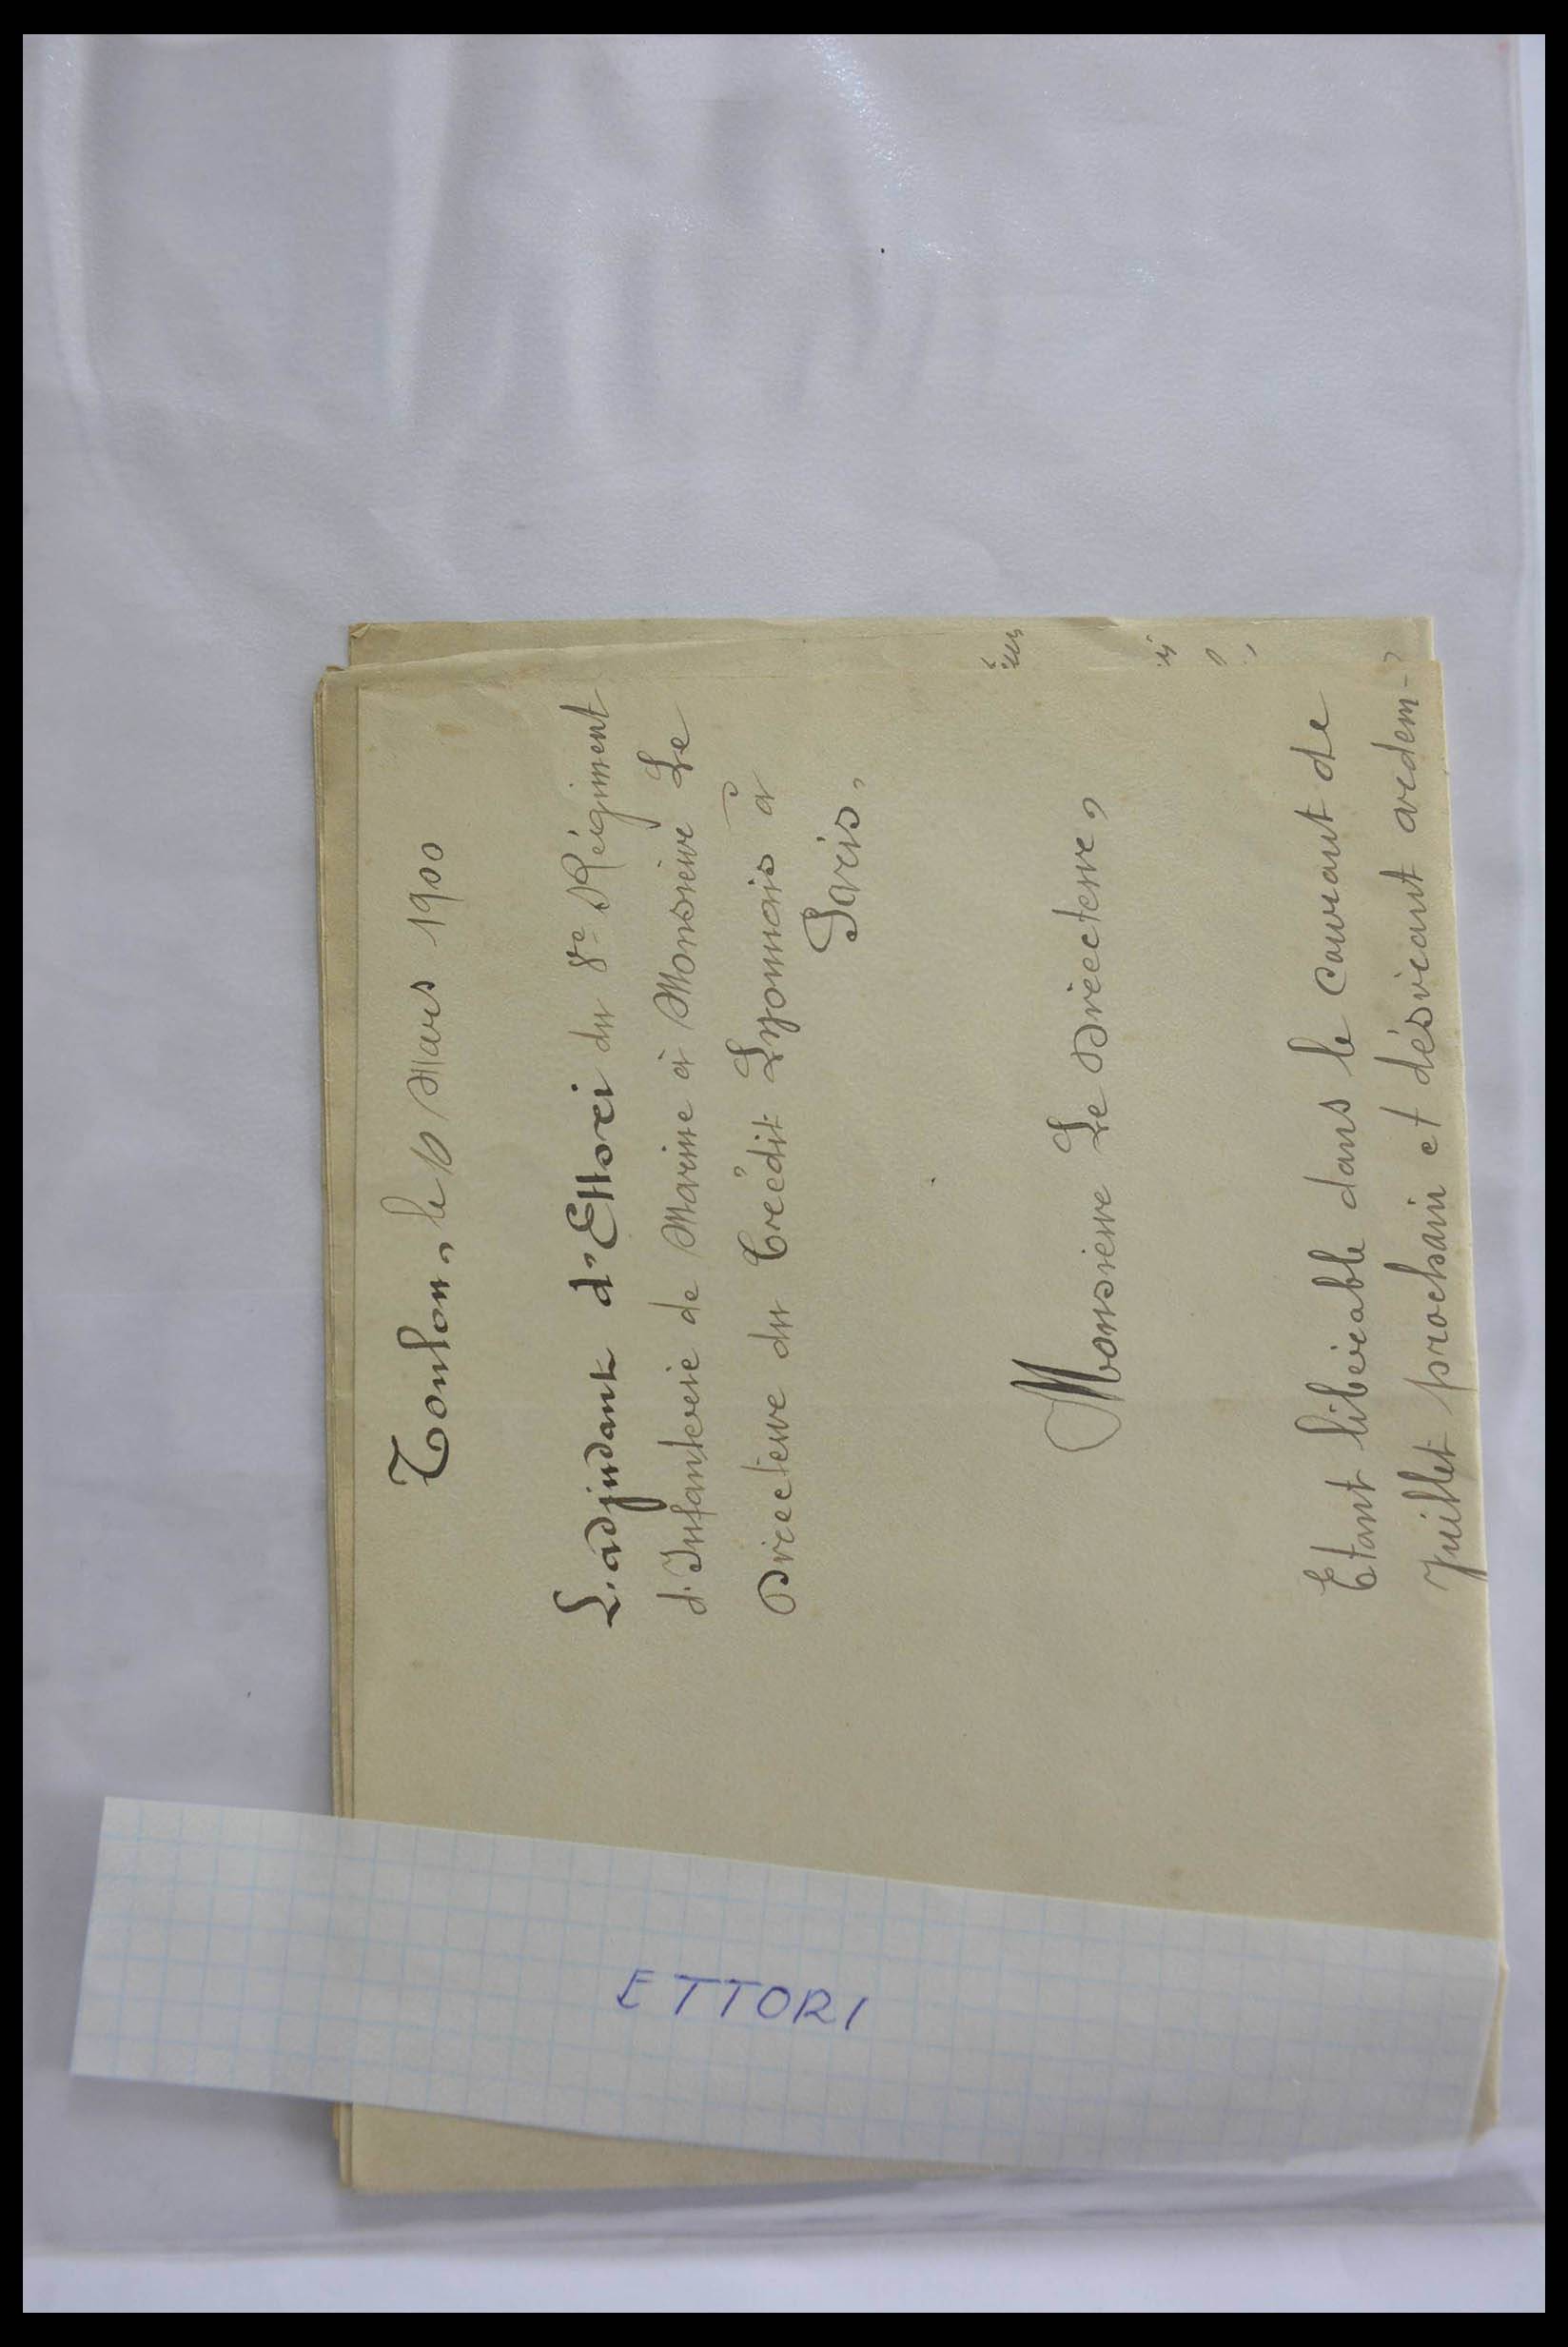 Toulon, le 10 Mars 1900
L'adjudant d'Ettori du 8e Régiment
d'Infanterie de Marine à Monsieur Le
Directeur du Crédit Lyonnais à
Paris,
Monsieur Le Directeur,
Etant libérable dans le courant de
Juillet prochain et désirant
ETTORI